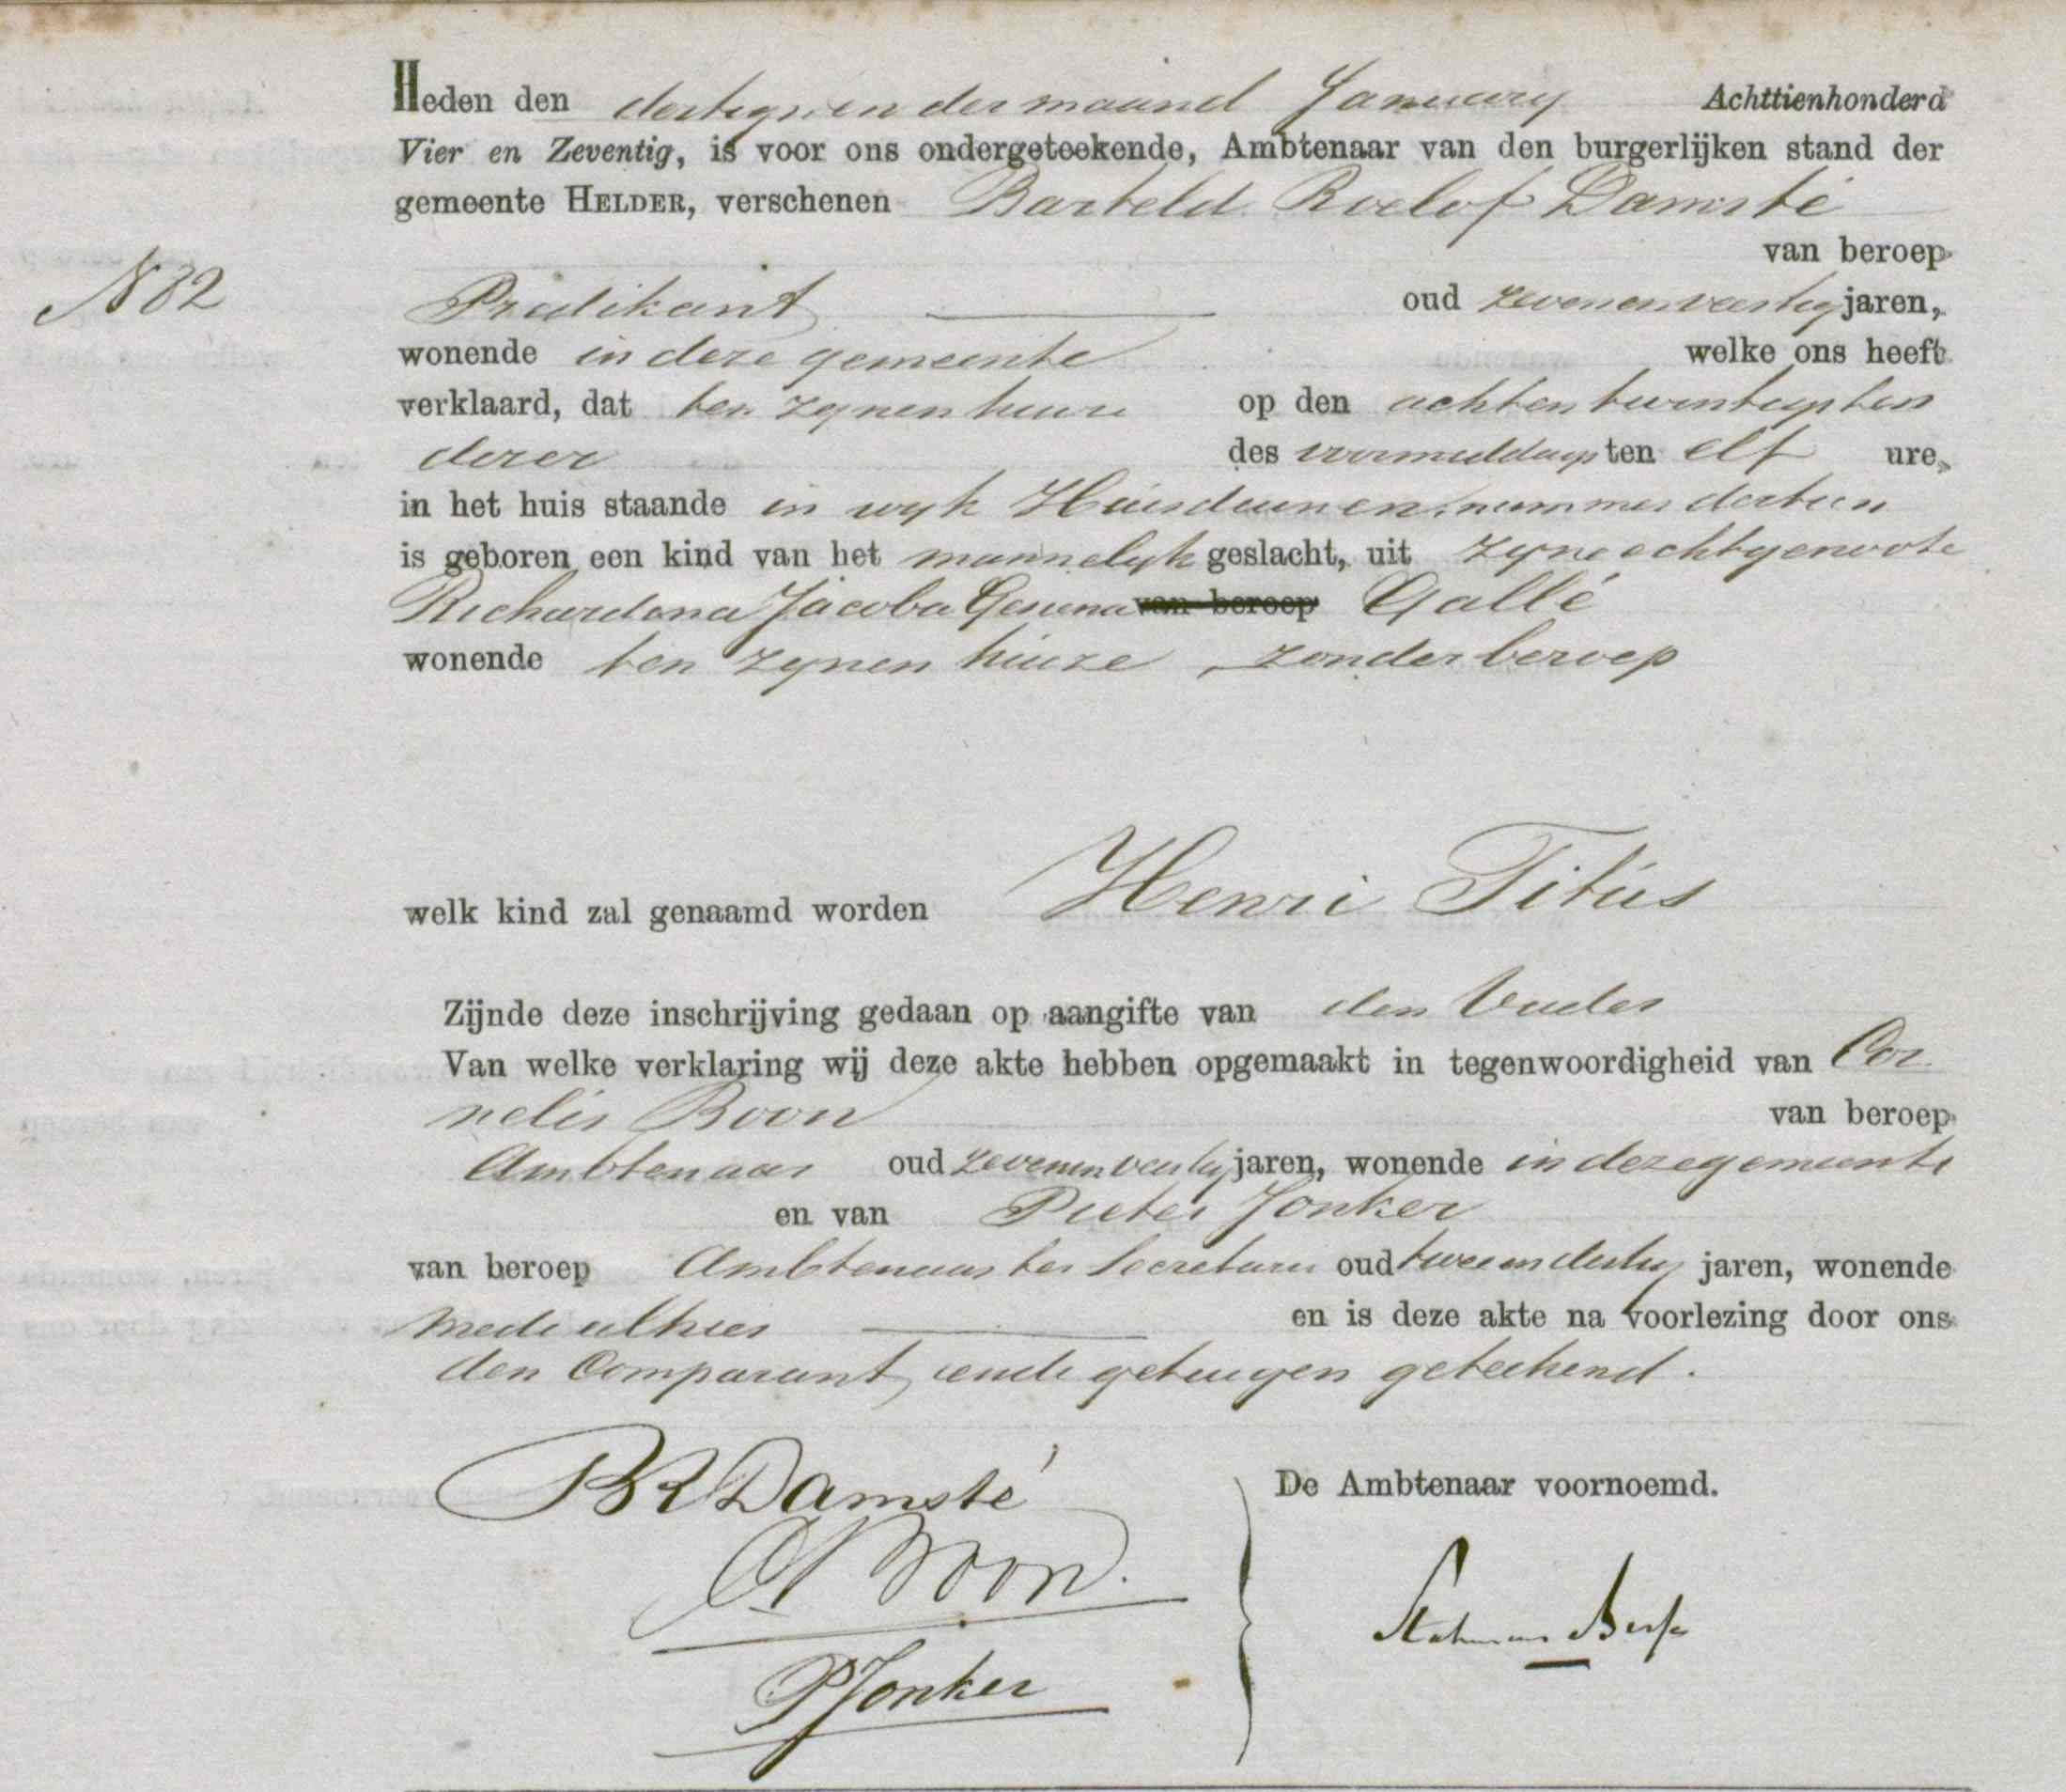 Heden den dertigsten der maand January Achttienhonderd
Vier en Zeventig, is voor ons ondergeteekende, Ambtenaar van den burgerlijken stand der
gemeente HELDER, verschenen Barteld Roelof Damsté
van beroep
N 82
Predikant oud zevenenveertig jaren,
wonende in deze gemeente welke ons heeft
verklaard, dat ten zynen huize op den achtentwintigsten
dezer des voormiddags ten elf ure,
in het huis staande in wyk Huisduinen nummer dertien
is geboren een kind van het mannelyk geslacht, uit zyne echtgenoote
Richardina Jacoba Gesina van beroep Gallé
wonende ten zynen huize, zonder beroep
welk kind zal genaamd worden Henri Titus
Zijnde deze inschrijving gedaan op aangifte van den Vader
Van welke verklaring wij deze akte hebben opgemaakt in tegenwoordigheid van Cor
nelis Boon van beroep
Ambtenaar oud zevenenveertig jaren, wonende in deze gemeente
en van Pieter Jonker
van beroep Ambtenaar ter Secretarie oud tweeendertig jaren, wonende
mede alhier en is deze akte na voorlezing door ons
den Comparant, ende getuigen geteekend.
BRDamsté
De Ambtenaar voornoemd.
C Boon.
PJonker